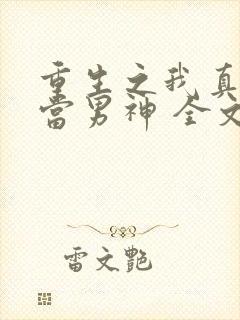 重生之我真
當男神 全文
雷文艷